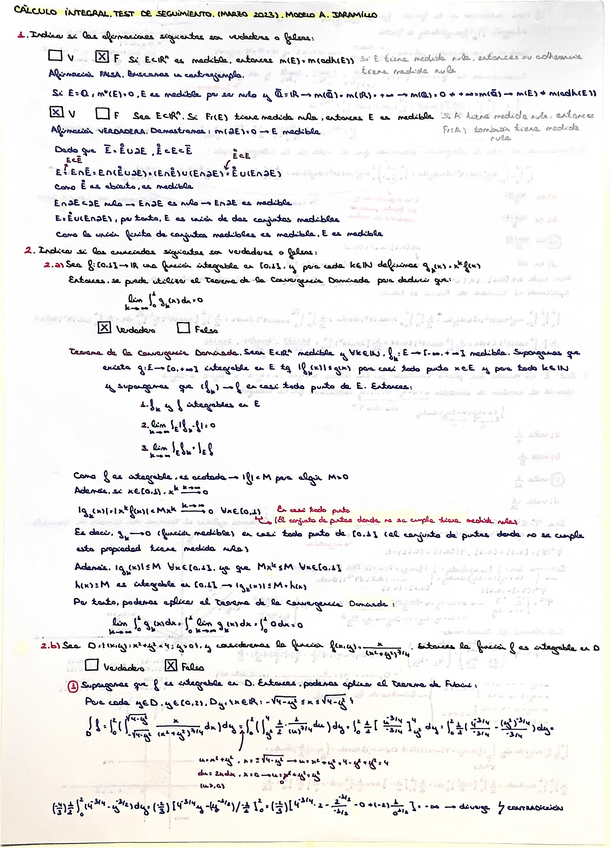 CÁLCULO INTEGRAL. TEST DE SEGUIMIENTO. (MARZO 2023). MODELO A. JARAMILLO
1. Indica si las afirmaciones siguientes son verdaderas o falsas:
☐ V ☒ F Si E⊂ℝⁿ es medible, entonces m(E)=m(adh(E)) Si E tiene medida nula, entonces su adherencia tiene medida nula
Afirmación FALSA. Buscamos un contraejemplo.
Si E=ℚ, m*(E)=0, E es medible por ser nulo y
☒ V ☐ F Sea E⊂ℝⁿ. Si Fr(E) tiene medida nula, entonces E es medible Si A tiene medida nula, entonces Fr(A) también tiene medida nula
Afirmación VERDADERA. Demostramos: m(∂E)=0 → E medible
Dado que
Como E̊ es abierto, es medible
E∩∂E⊂∂E nulo → E∩∂E es nulo → E∩∂E es medible
E=E̊∪(E∩∂E), por tanto, E es unión de dos conjuntos medibles
Como la unión finita de conjuntos medibles es medible, E es medible
2. Indica si los enunciados siguientes son verdaderos o falsos:
2.a) Sea f:[0,1]→ℝ una función integrable en [0,1], y para cada k∈ℕ definimos gₖ(x)=xᵏf(x)
Entonces, se puede utilizar el Teorema de la Convergencia Dominada para deducir que:
lim k→∞ ∫₀¹ gₖ(x)dx=0
☒ Verdadero ☐ Falso
Teorema de la Convergencia Dominada. Sean E⊂ℝⁿ medible y ∀k∈ℕ, fₖ:E→[-∞,+∞] medible. Supongamos que
existe g:E→[0,+∞] integrable en E tq |fₖ(x)|≤g(x) para casi todo punto x∈E y para todo k∈ℕ
y supongamos que (fₖ)→f en casi todo punto de E. Entonces:
1. fₖ y f integrables en E
2. lim k→∞ ∫E|fₖ-f|=0
3. lim k→∞ ∫E fₖ=∫E f
Como f es integrable, es acotada → |f|<M para algún M>0
Además, si x∈[0,1), xᵏ →0
|gₖ(x)|=|xᵏf(x)|<Mxᵏ →0 ∀x∈[0,1) En casi todo punto
(El conjunto de puntos donde no se cumple tiene medida nula)
Es decir, gₖ→0 (función medibles) en casi todo punto de [0,1] (el conjunto de puntos donde no se cumple
esta propiedad tiene medida nula)
Además, |gₖ(x)|≤M ∀x∈[0,1], ya que Mxᵏ≤M ∀x∈[0,1]
h(x)=M es integrable en [0,1] → |gₖ(x)|≤M=h(x)
Por tanto, podemos aplicar el Teorema de la Convergencia Dominada:
lim k→∞ ∫₀¹ gₖ(x)dx=∫₀¹ lim k→∞ gₖ(x)dx=∫₀¹ 0dx=0
2.b) Sea y consideremos la función f(x,y)= x/(x²+y²)^7/4. Entonces la función f es integrable en D
☐ Verdadero ☒ Falso
① Supongamos que f es integrable en D. Entonces, podemos aplicar el Teorema de Fubini:
Para cada y∈D, y∈(0,2), Dy={x∈ℝ: -√4-y² ≤x≤ √4-y²}
→ diverge ↯ CONTRADICCIÓN